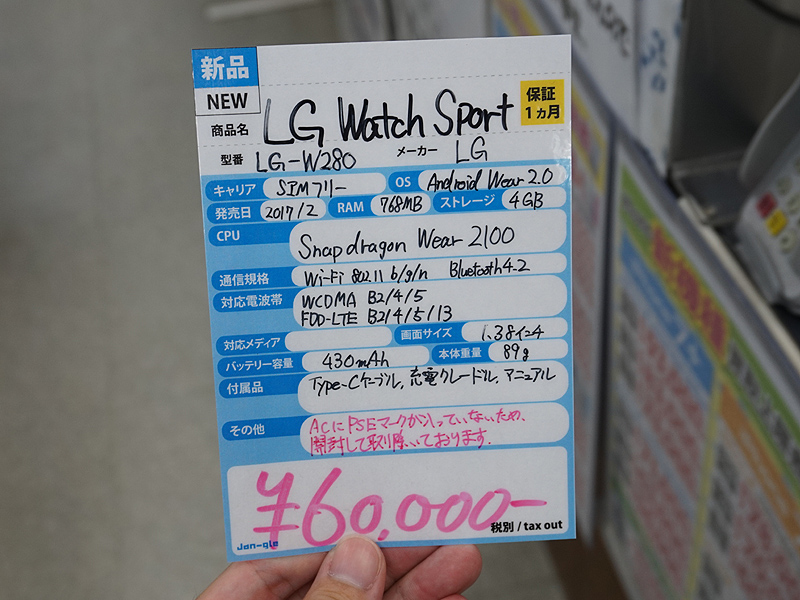 新品
NEW
保証
1ヵ月
商品名 LG Watch Sport
型番 LG-W280 メーカー LG
キャリア SIMフリー OS Android Wear 2.0
発売日 2017/2 RAM 768MB ストレージ 4GB
CPU Snapdragon Wear 2100
通信規格 Wi-Fi 802.11 b/g/n Bluetooth4.2
対応電波帯 WCDMA B2/4/5
FDD-LTE B2/4/5/13
対応メディア 画面サイズ 1.38インチ
バッテリー容量 430mAh 本体重量 89g
付属品 Type-Cケーブル, 充電クレードル, マニュアル
その他 ACにPSEマークが入っていないため、
開封して取り除いております.
¥60,000-
税別 / tax out
Jan-gle